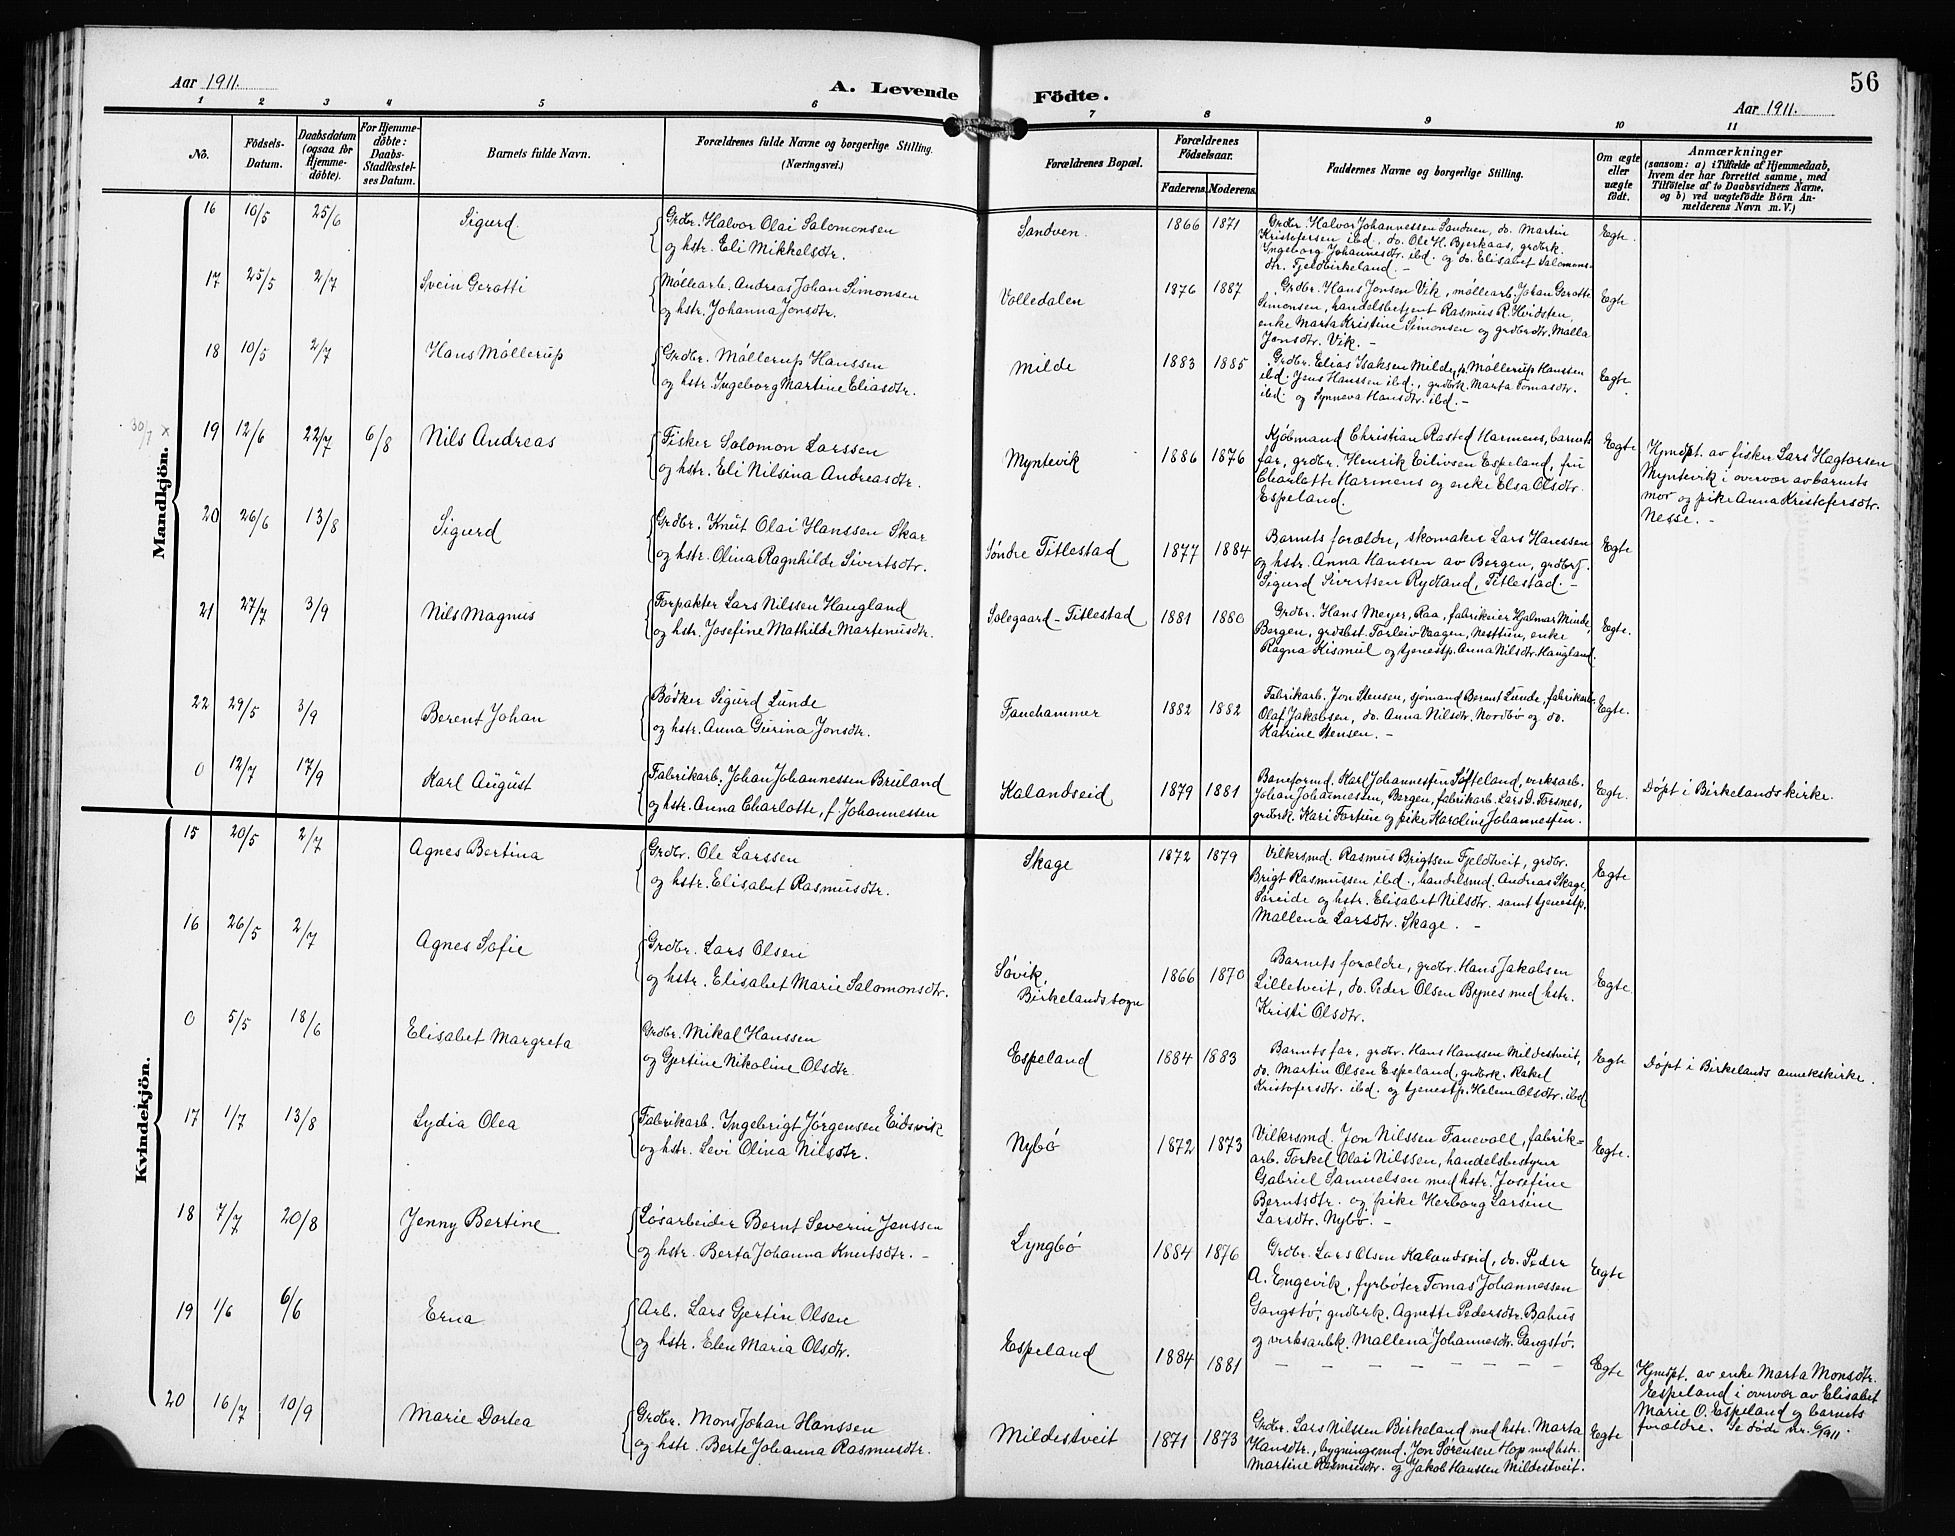 Aar 1911.
A. Levende Födte.
56
Aar 1911.
1 2 3 4 5 6 7 8 9 10 11
No.
Födsels-
Datum.
Daabsdatum
(ogsaa for
Hjemme-
döbte).
For Hjemme-
döbte:
Daabs-
Stadfæstel-
ses Datum.
Barnets fulde Navn.
Forældrenes fulde Navne og borgerlige Stilling.
(Næringsvei.)
Forældrenes Bopæl.
Forældrenes
Födselsaar.
Faderens. Moderens.
Faddernes Navne og borgerlige Stilling.
Om ægte
eller
uægte
födt.
Anmærkninger
(saasom: a) i Tilfælde af Hjemmedaab,
hvem der har forrettet samme, med
Tilföielse af to Daabsvidners Navne,
og b) ved uægtefödte Börn An-
melderens Navn m. V.)
Mandkjön.
16 10/5 25/6 Sigurd.
Grdbr. Halvor Olai Salomonsen
og hstr. Eli Mikkelsdtr.
Sandven. 1866 1871
Grdbr. Halvor Johannessen Sandven, do. Martin
Kristofersen ibd. do. Ole H. Bjerkaas, grdbrk.
Ingeborg Johannesdtr. ibd. og do. Elisabet Salomons-
dtr. Fjeldbirkeland. –
Egte.
17 25/5 2/7 Svein Gerotti
Møllearb. Andreas Johan Simonsen
og hstr. Johanna Jonsdtr.
Volledalen 1876 1887
Grdbr. Hans Jonsen Vik, møllearb. Johan Gerotte
Simonsen, handelsbetjent Rasmus R. Hvidsten,
enke Marta Kristine Simonsen og grdbrdtr. Malla
Jonsdtr. Vik. –
Egte
18 10/5 2/7 Hans Møllerup
Grdbr. Møllerup Hanssen
og hstr. Ingeborg Martine Eliasdtr.
Milde 1883 1885
Grdbr. Elias Isaksen Milde, Møllerup Hanssen
ibd. Jens Hanssen ibd., grdbrk. Marta Tomasdtr.
ibd. og Synneva Hansdtr. ibd. –
Egte.
30/7 x
19 12/6 22/7 6/8 Nils Andreas
Fisker Salomon Larssen
og hstr. Eli Nilsina Andreasdtr.
Myntevik 1886 1876
Kjøbmand Christian Rasted Harmens, barnets
far, grdbr. Henrik Eilivsen Espeland, fru
Charlotte Harmens og enke Elsa Olsdtr.
Espeland.
Egte
Hjmdpt. av fisker Lars Hagtorsen
Myntevik i overvær av barnets
mor og pike Anna Kristofersdtr.
Nesse. –
20 26/6 13/8 Sigurd
Grdbr. Knut Olai Hanssen Skar
og hstr. Olina Ragnhilde Sivertsdtr.
Søndre Titlestad 1877 1884
Barnets forældre, skomaker Lars Hanssen
og hstr. Anna Hanssen av Bergen, grdbrs.
Sigurd Sivertsen Rydland, Titlestad. –
Egte
21 27/7 3/9 Nils Magnus
Forpakter Lars Nilssen Haugland
og hstr. Josefine Mathilde Martinusdtr.
Solegaard – Titlestad 1881 1880
Grdbr. Hans Meyer, Raa, fabrikeier Hjalmar Minde,
Bergen, grdbest. Torleiv Vaagen, Nesttun, enke
Ragna Kismul og tjenestp. Anna Nilsdtr. Haugland.
Egte.
22 29/5 3/9 Berent Johan
Bødker Sigurd Lunde
og hstr. Anna Gurina Jonsdtr.
Fanehammer 1882 1882
Fabrikarb. Jon Stensen, sjømand Berent Lunde, fabrikarb.
Olaf Jakobsen, do. Anna Nilsdtr. Nordbø og do.
Katrine Stensen. –
Egte.
0 12/7 17/9 Karl August
Fabrikarb. Johan Johannessen Bruland
og hstr. Anna Charlotte, f. Johannessen
Kalandseid 1879 1881
Baneformd. Karl Johannessen Søfteland, virksarb.
Johan Johannessen, Bergen, fabrikarb. Lars D. Torsnes,
grdbrk. Kari Fortun og pike Karoline Johannessen.
Egte.
Døpt i Birkelands kirke.
Kvindekjön.
15 20/5 2/7 Agnes Bertina
Grdbr. Ole Larssen
og hstr. Elisabet Rasmusdtr.
Skage 1872 1879
Vilkersmd. Rasmus Brigtsen Fjeldtveit, grdbr.
Brigt Rasmussen ibd., handelsmd. Andreas Skage,
Søreide og hstr. Elisabet Nilsdtr. samt tjenestp.
Mallena Larsdtr. Skage. –
Egte
16 26/5 2/7 Agnes Sofie
Grdbr. Lars Olsen
og hstr. Elisabet Marie Salomonsdtr.
Søvik,
Birkelands sogn 1866 1870
Barnets forældre, grdbr. Hans Jakobsen
Lilletveit, do. Peder Olsen Bynes med hstr.
Kristi Olsdtr.
Egte.
0 5/5 18/6 Elisabet Margreta
Grdbr. Mikal Hanssen
og Gertine Nikoline Olsdtr.
Espeland 1884 1883
Barnets far, grdbr. Hans Hanssen Mildestveit,
do. Martin Olsen Espeland, grdbrk. Rakel
Kristofersdtr. ibd. og tjenestp. Helene Olsdtr. ibd
Egte
Døpt i Birkelands annekskirke.
17 1/7 13/8 Lydia Olea
Fabrikarb. Ingebrigt Jørgensen Eidsvik
og hstr. Levi Olina Nilsdtr.
Nybø 1872 1873
Vilkersmd. Jon Nilssen Fanevoll, fabrik=
arb. Torkel Olai Nilssen, handelsbestyrer
Gabriel Samuelsen med hstr. Josefine
Berntsdtr. og pike Herborg Larsine
Larsdtr. Nybø. –
Egte.
18 7/7 20/8 Jenny Bertine
Løsarbeider Bernt Severin Jenssen
og hstr. Berta Johanna Knutsdtr. –
Lyngbø 1884 1876
Grdbr. Lars Olsen Kalandseid, do. Peder
A. Engevik, fyrbøter Tomas Johannessen
Gangstø, grdbrk. Agnette Pedersdtr. Bahus
og virksarbk. Mallena Johannesdtr. Gangstø.
Egte
19 1/6 6/6 Erna
Arb. Lars Gertin Olsen
og hstr. Elen Maria Olsdtr.
Espeland 1884 1881
– – – – – – –
Egte
Hjmdpt. av enke Marta Monsdtr.
Espeland i overvær av Elisabet
Marie O. Espeland og barnets
forældre. Se døde nr. 6/1911.
20 16/7 10/9 Marie Dortea
Grdbr. Mons Johan Hanssen
og hstr. Berte Johanna Rasmusdtr.
Mildestveit 1871 1873
Grdbr. Lars Nilssen Birkeland med hstr. Marta
Hansdtr., bygningsmd. Jon Sørensen Hop med hstr.
Martine Rasmusdtr. og Jakob Hanssen Mildestveit.
Egte